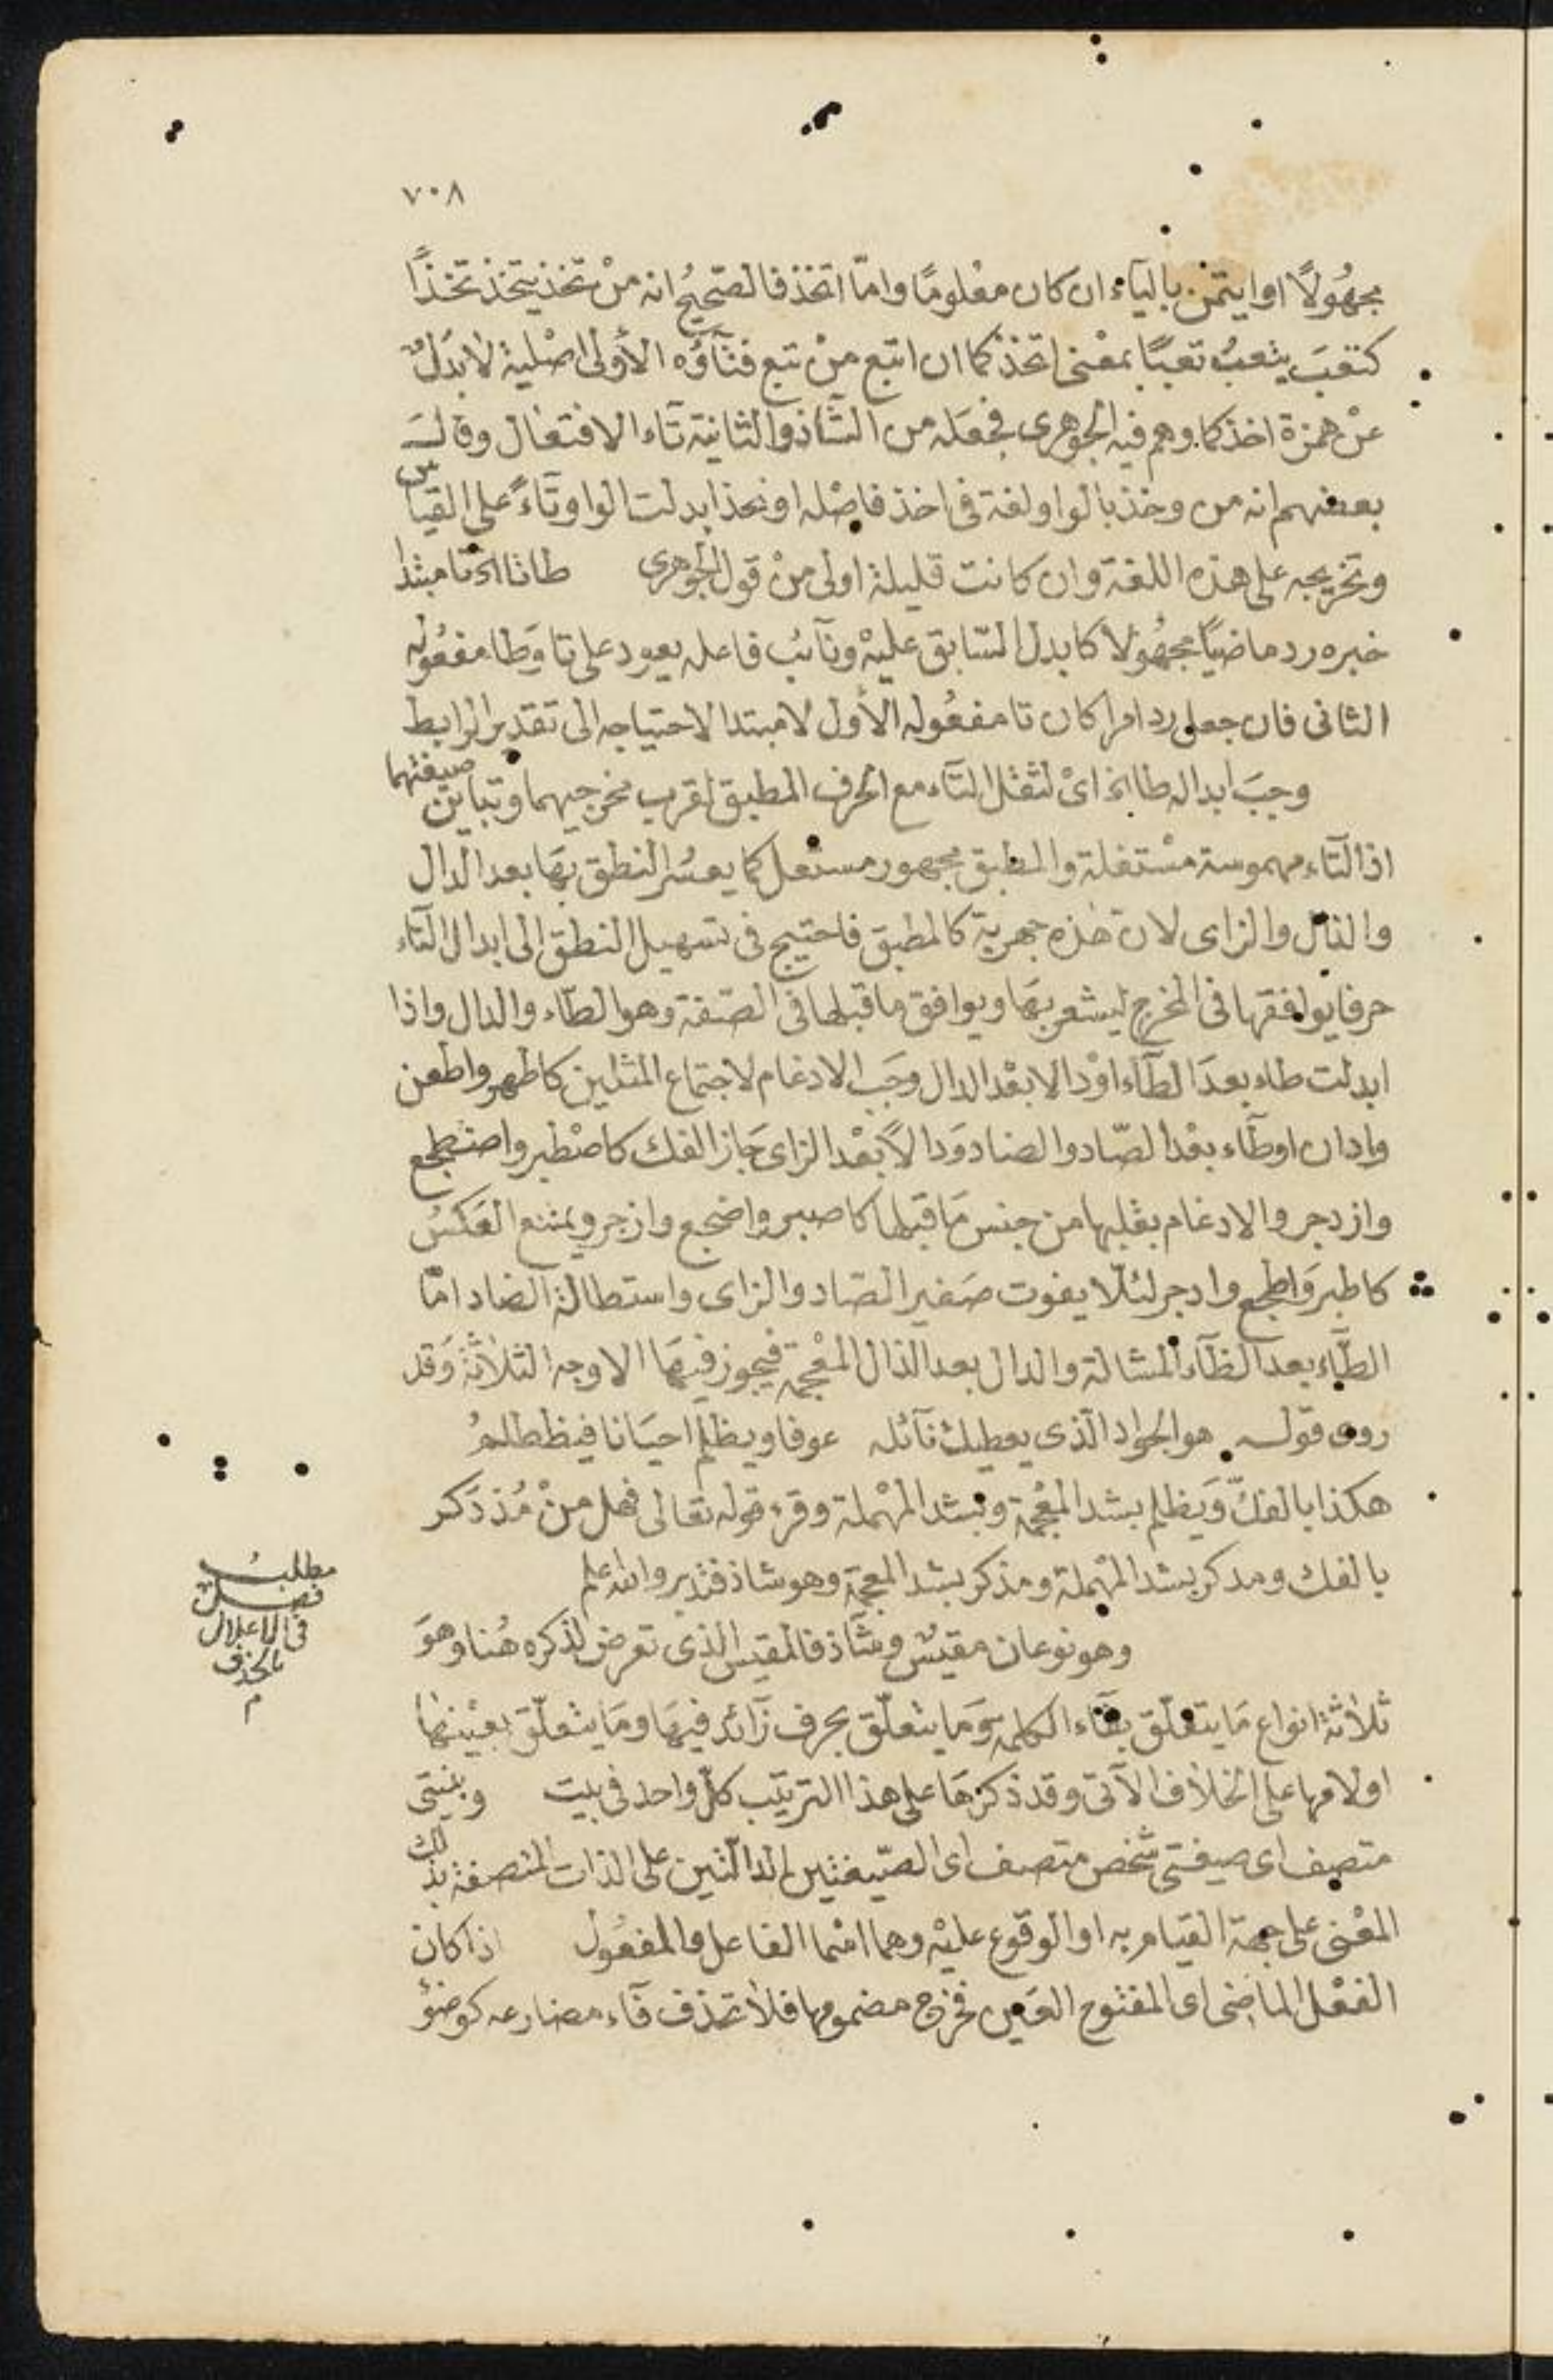 ٧٠٨
مجهُولًا او ايتمن بالياء ان كان معْلومًا وامّا اتخذ فالصّحيحُ انه منْ تخذ يتخذ تخذًا
كتعبَ يتعبُ تعبًا بمعْنى اتخذ كما ان اتبع منْ تبع فتآؤُه الأولى اصْلية لا بدَلٌ
عنْ همزة اخذ كما وهم فيه الجوهرى فجعَله من الشّاذ والثانية تآء الافتعال وقال
بعضهم انه من وخذ بالواو لغة فى اخذ فاصْله اوتخذ ابدلت الواو تآءً على القياس
وتخريجه على هذه اللغة وان كانت قليلة اولى منْ قول الجوهرى طاتا الخ تا مبتدا
خبره رد ماضيًا مجهُولًا كابدل السّابق عليْه ونآئب فاعله يعود على تا وَطا مفعُوله
الثانى فان جعل رد امرا كان تا مفعُوله الأول لا مبتدا لاحتياجه الى تقدير الرابط
وجبَ ابداله طا الخ اىْ لثقل التآء مع الحرف المطبق لقرب مخرجيهما وتباين صيغتهما
اذ التآء مهموسة مسْتفلة والمطبق مجهور مستعل كما يعسُر النطق بهَا بعد الدال
والذال والزاى لان هٰذه جهرية كالمطبق فاحتيج فى تسهيل النطق الى ابدال التآء
حرفا يوافقها فى المخرج ليشعر بهَا ويوافق ما قبلها فى الصّفة وهو الطّاء والدال واذا
ابدلت طاء بعدَ الطآء اوْ دالا بعْد الدال وجَب الادغام لاجتماع المثلين كاطهر واطعن
وادان اوطآء بعْد الصّاد والضاد وَدالًا بعْد الزاى جَاز الفك كاصْطبر واضطجع
وازدجر والادغام بقلبها من جنس مَا قبلها كاصبر واضجع وازجر ويمتنع العَكسُ
كاطبر وَاطجع وادجر لئلّا يفوت صَفير الصّاد والزاى واستطالة الضاد امّا
الطّاء بعد الظآء المشالة والدال بعد الذال المعْجمة فيجوز فيهَا الاوجه الثلاثة وَقد
روى قوله هو الجواد الّذى يعطيك نآئله عوفا ويظلم احيَانا فيظطلمُ
هكذا بالفكّ وَيظلم بشد المعْجمة وبشد المهْملة وقرء قوله تعالى فهل منْ مُذدَكر
بالفك ومدكر بشد المهْملة ومذكر بشد المعجمة وهو شاذ فتدبر والله اعلم
مطلبُ
فصلٌ
فى الاعلال
بالحذف
م
وهو نوعان مقيسٌ وشآذ فالمقيس الذى تعرض لذكره هُنا وهوَ
ثلاثة انواع مَا يتعلّق بفَاء الكلمة وَمَا يتعلّق بحرف زآئد فيهَا ومَا يتعلّق بعيْنها
او لامها على الخلاف الآتى وقد ذكرهَا على هذا الترتيب كلّ واحد فى بيت وبنيتى
متصف اى صيغتى شخص متصف اى الصّيغتين الدالّتين على الذات المتصفة بذلك
المعْنى على جهة القيام به او الوقوع عليْه وهما اسْما الفاعل والمفعُول اذا كان
الفعْل الماضى اى المفتوح العَين فخرج مضمومها فلا تحذف فآء مضارعه كوضؤ